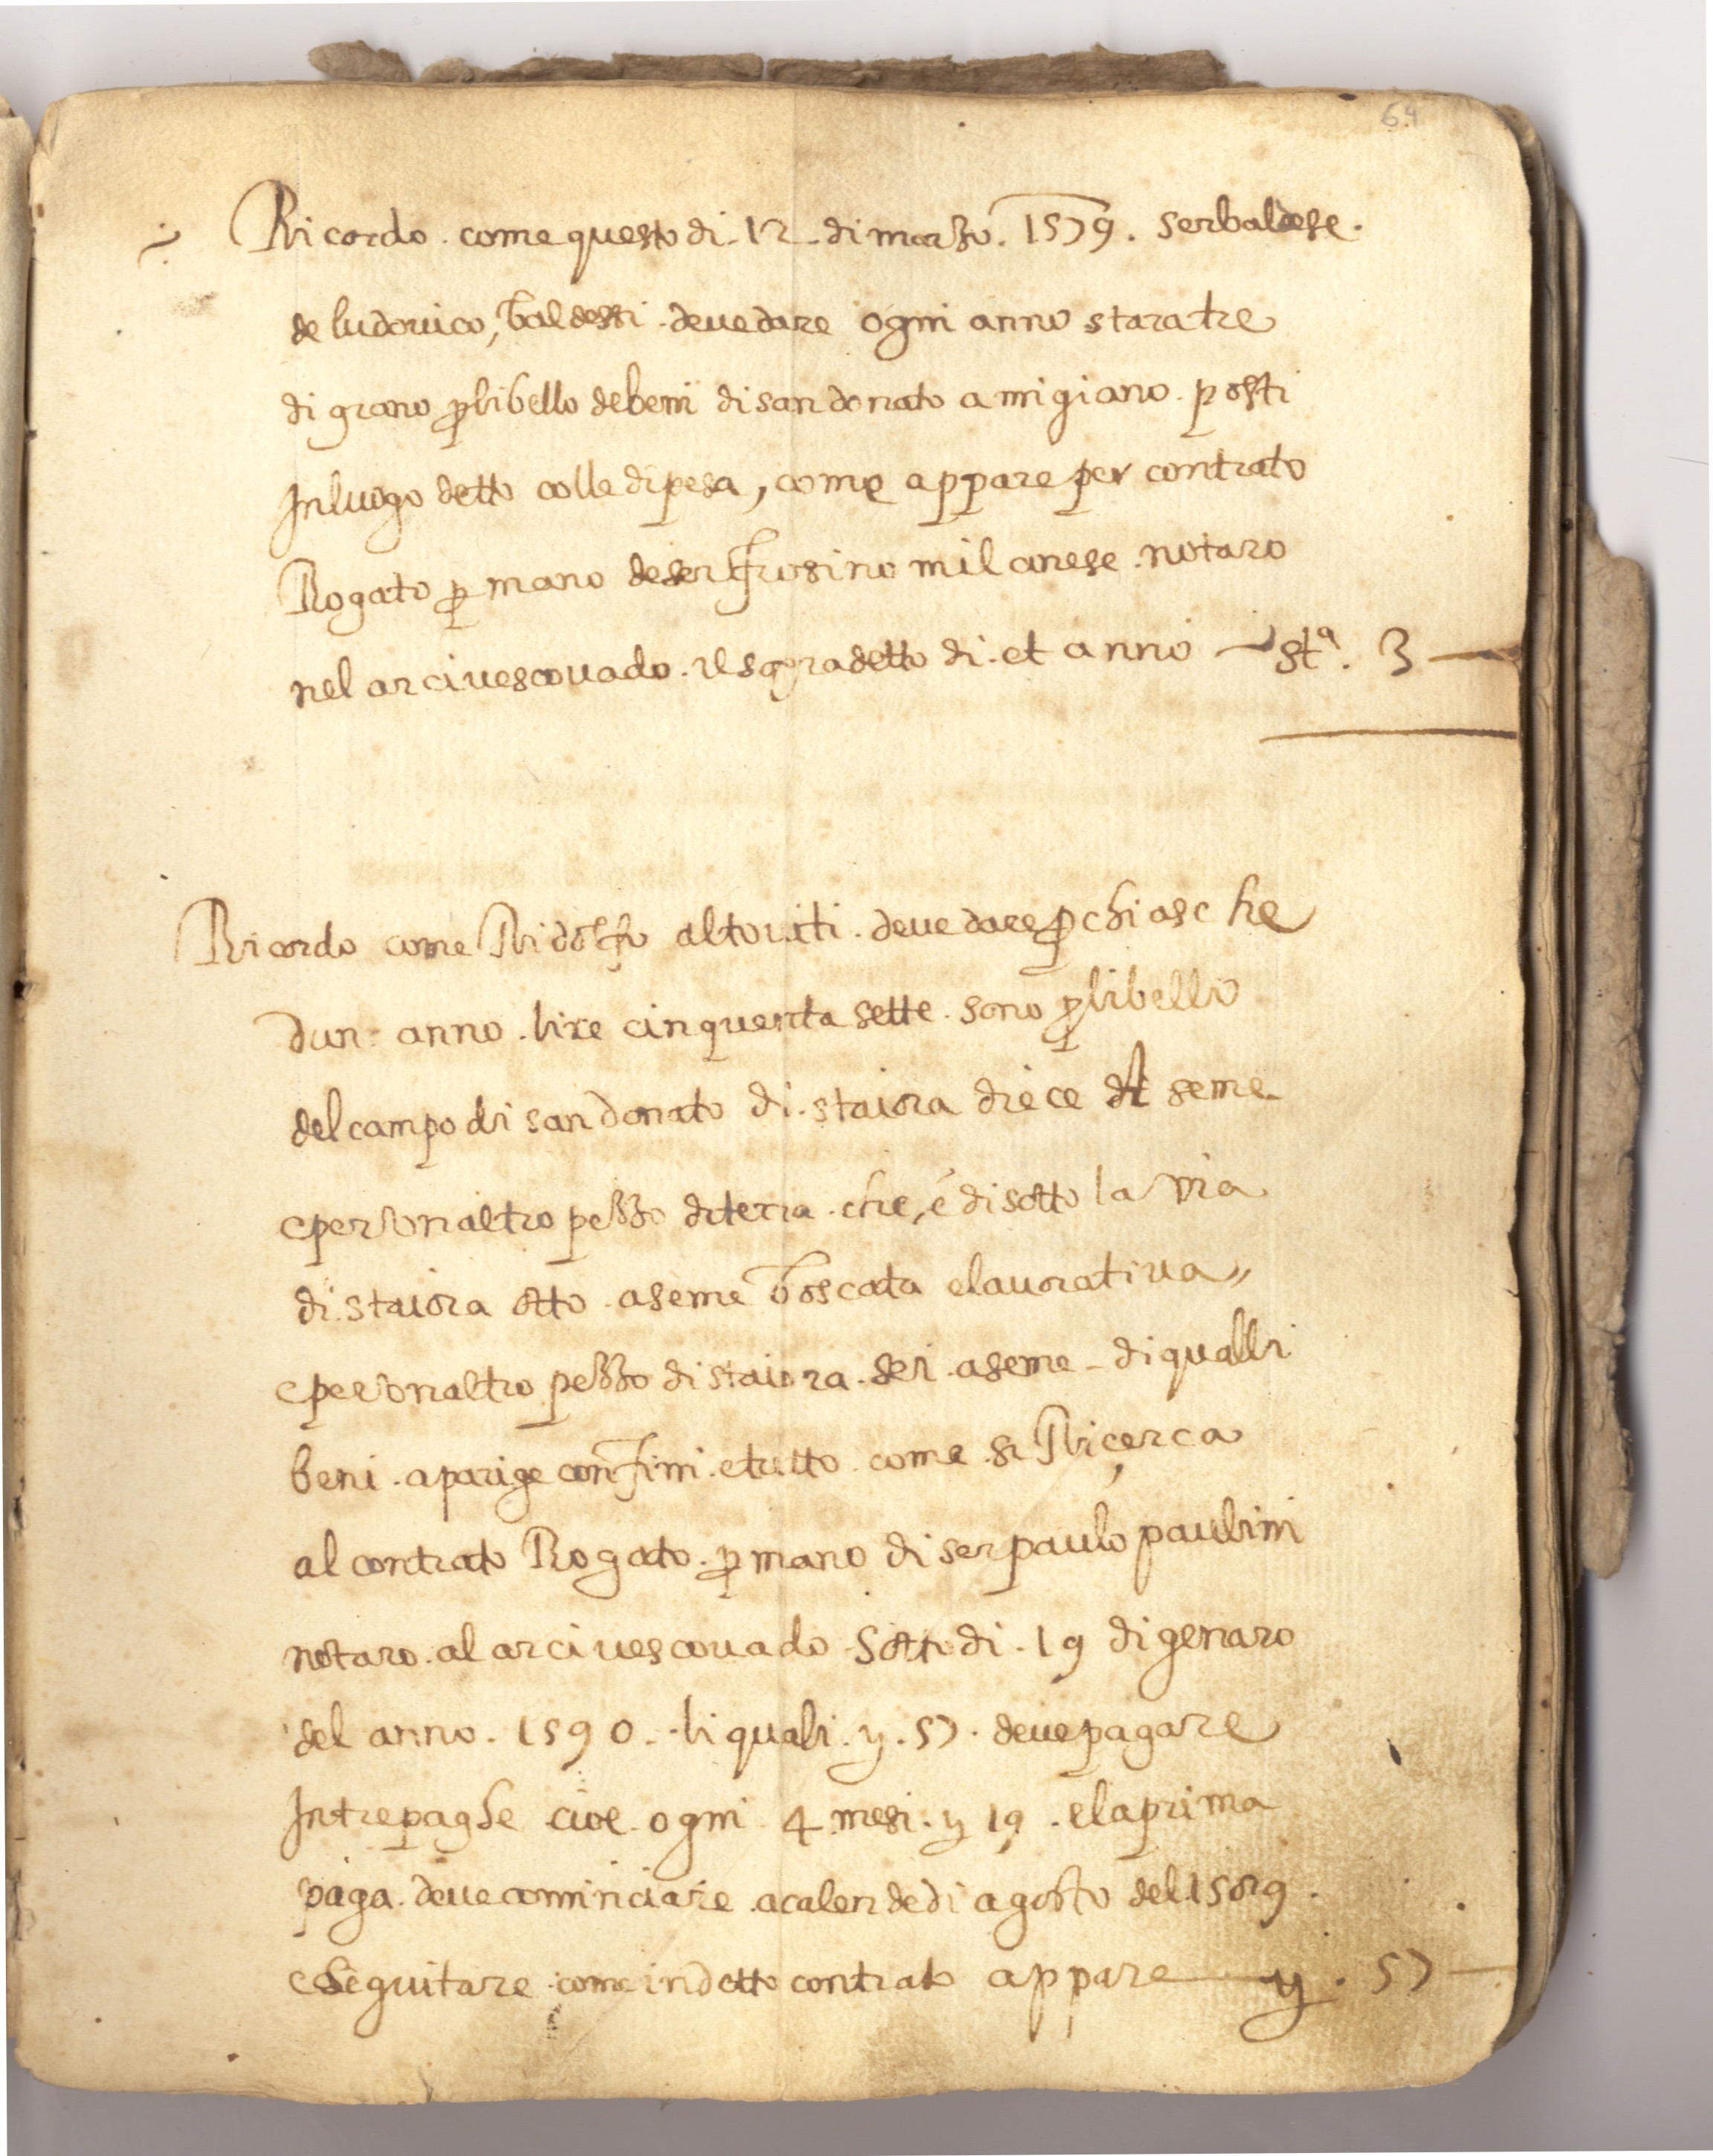 64
Ricordo. come questo di. 12. di marzo. 1579. ser baldese.
de ludouico, baldessi. deue dare ogni anno stara tre
di grano p libello de beni di san donato a migiano. posti
In luogo detto colle di pesa, come appare per contrato
Rogato p mano de ser frosino milanese. notaro
nel arciuescouado. il sopradetto di. et anno — stª. 3 —
Ricordo come Ridolfo altouiti. deue dare p chiasche
dun anno. lire cinquenta sette. sono p libello
del campo di san donato di. staiora diece di seme
e per un altro pezzo di terra. che, é di sotto la via
di staiora otto. a seme boscata e lauoratiua
e per un altro pezzo di staiora. sei. a seme - di qualli
beni. a parige confini. e tutto. come. si Ricerca
al contrato Rogato. p mano di ser paulo paulini
notaro. al arciuescouado. sotto di. 19 di genaro
del anno. 1590. li quali. y. 57. deue pagare
In tre paghe cioe. ogni 4 mesi. y 19. e la prima
paga. deue cominciare. a calende di agosto del 1589.
e seguitare. come in detto contrato appare — y. 57 —